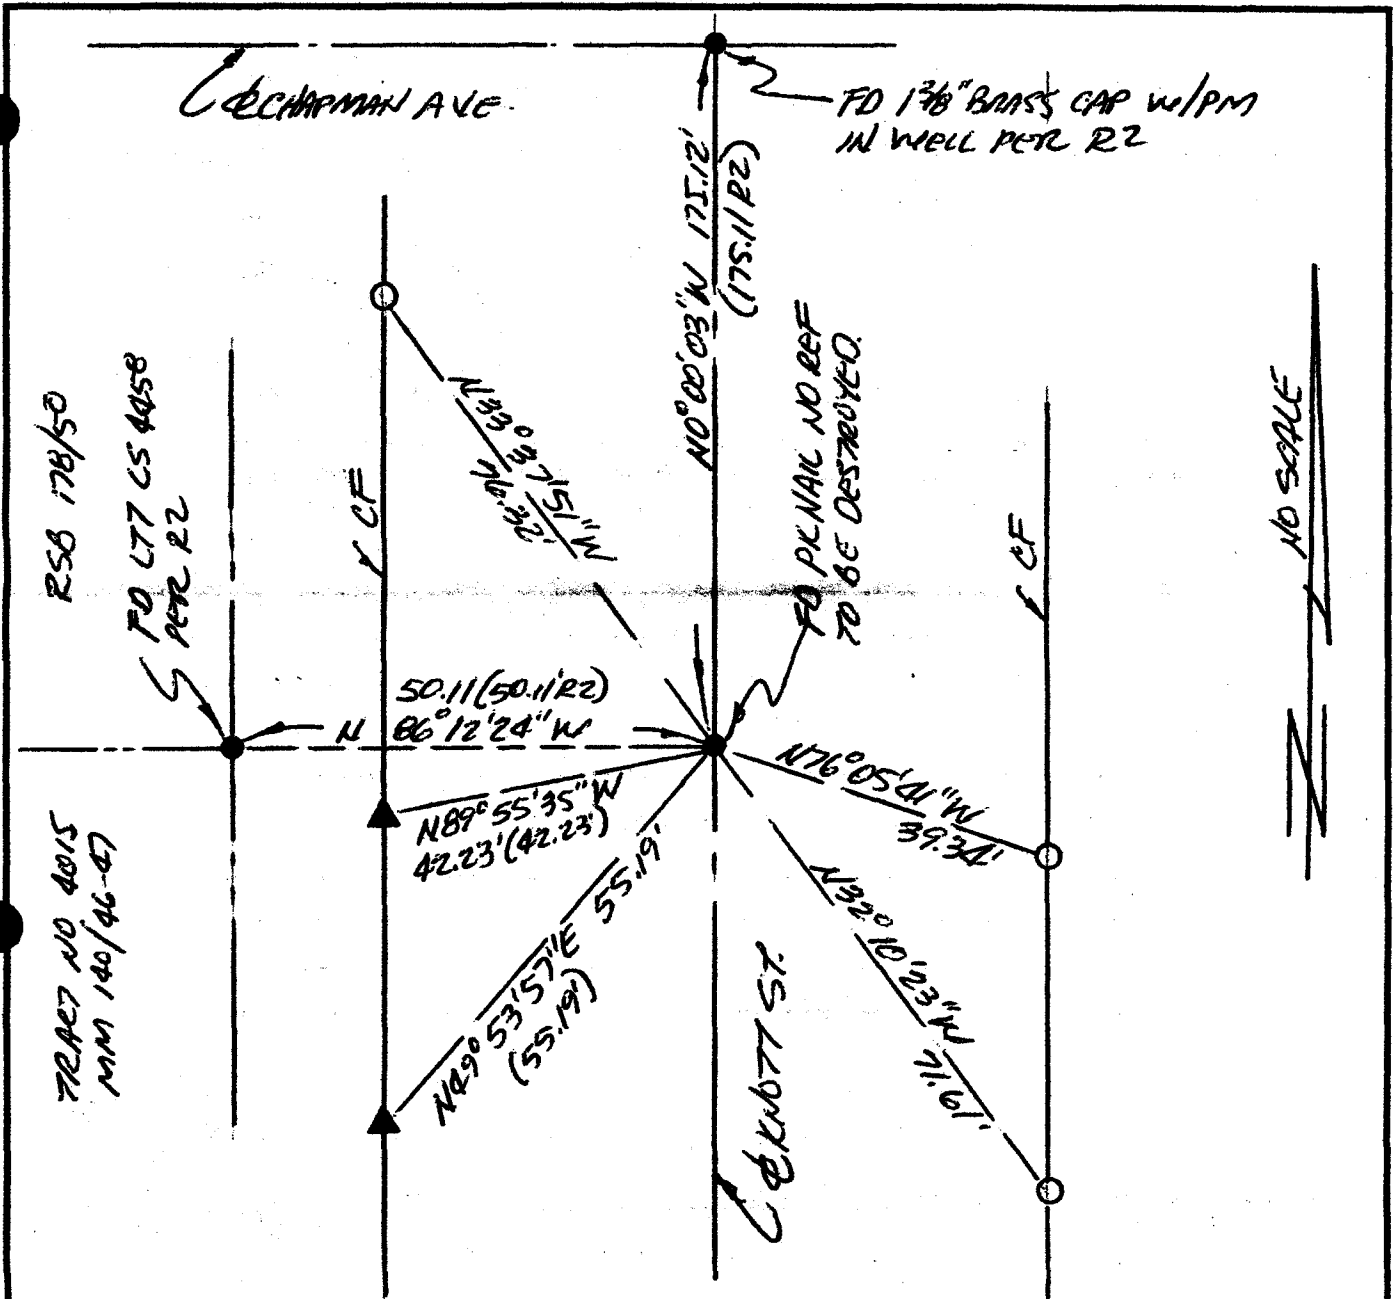 ℄ CHAPMAN AVE.
FD 1 3/8" BRASS CAP W/PM
IN WELL PER R2
N0°00'03"W 175.12'
(175.11 R2)
RSB 178/50
FD L77 LS 4458
PER R2
CF
N33°37'51"W
70.32'
FD PK NAIL NO REF
TO BE DESTROYED.
CF
NO SCALE
N
50.11 (50.11' R2)
N 86°12'24" W
N89°55'35"W
42.23' (42.23')
N76°05'41"W
39.34'
TRACT NO 4015
MM 140/46-47
N49°53'57"E 55.19'
(55.19')
N32°10'23"W
71.61'
℄ KNOTT ST.